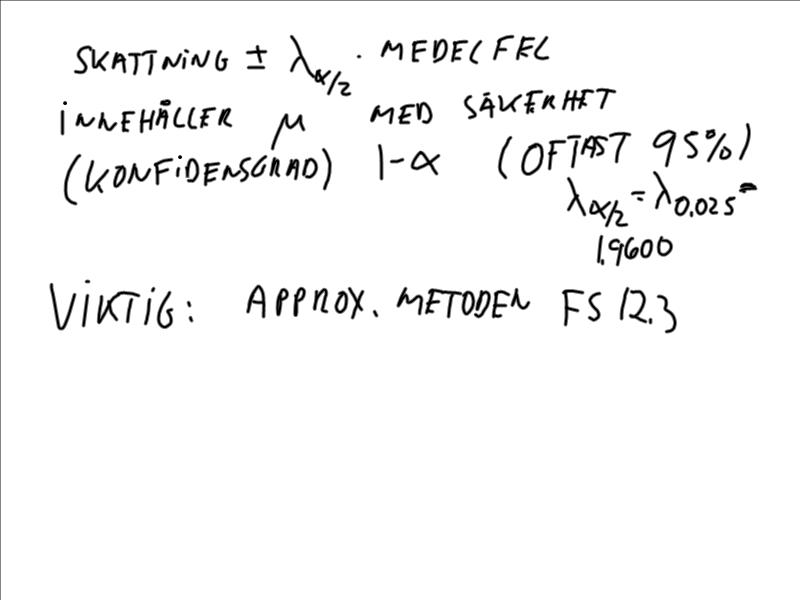 SKATTNING ± λα/2 · MEDELFEL
INNEHÅLLER μ MED SÄKERHET
(KONFIDENSGRAD) 1-α (OFTAST 95%)
λα/2 = λ0.025 =
1.9600
VIKTIG: APPROX. METODEN FS 12.3